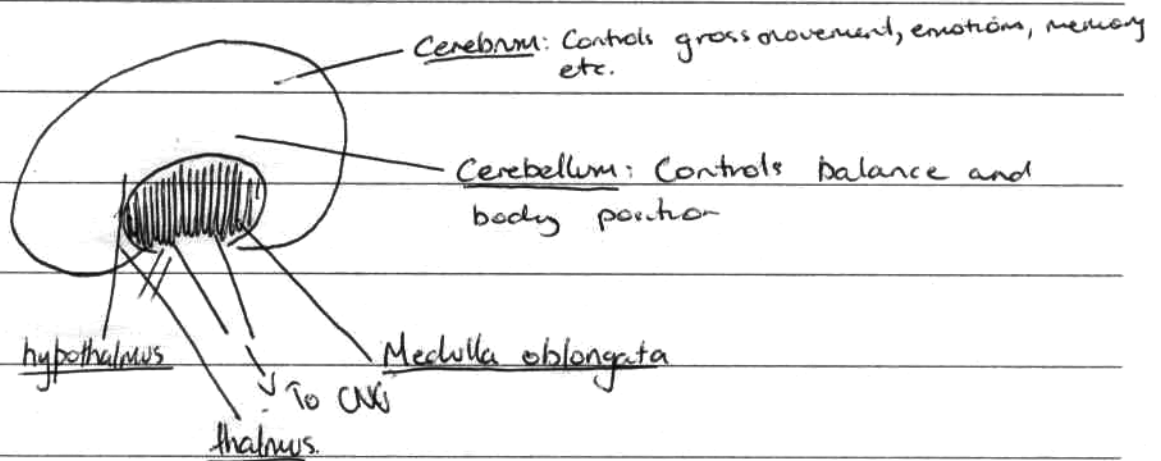 Cerebrum: Controls gross movement, emotions, memory
etc.
Cerebellum: Controls balance and
body position
hypothalmus
Medulla oblongata
To CNS
thalmus.